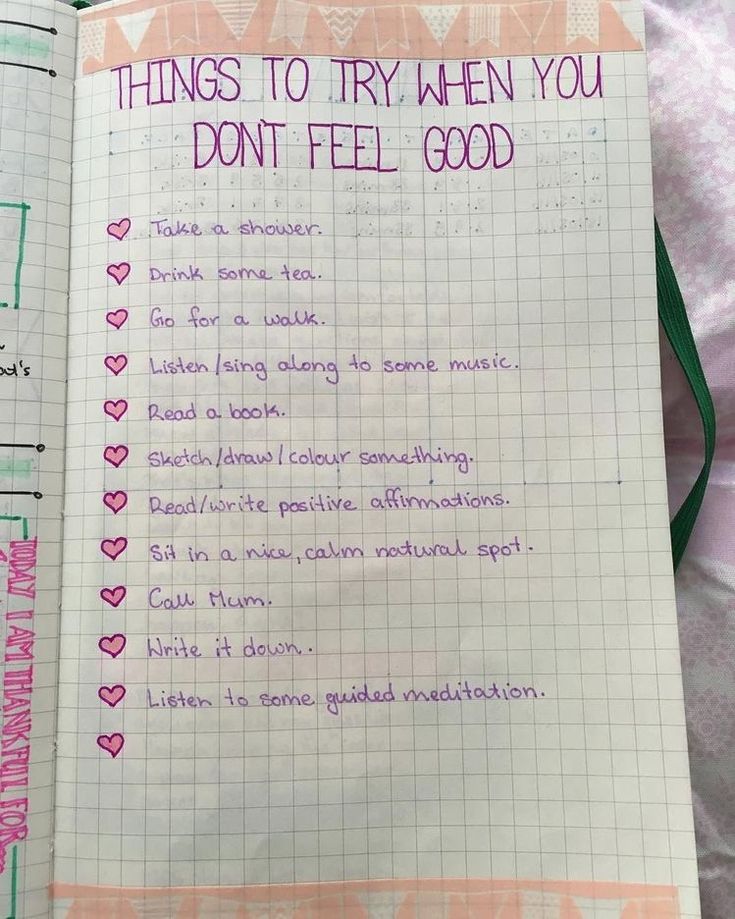 THINGS TO TRY WHEN YOU
DON'T FEEL GOOD
Take a shower.
Drink some tea.
Go for a walk.
Listen/sing along to some music.
Read a book.
Sketch/draw/colour something.
Read/write positive affirmations.
Sit in a nice, calm natural spot.
Call Mum.
Write it down.
Listen to some guided meditation.
TODAY I AM THANKFULL FOR